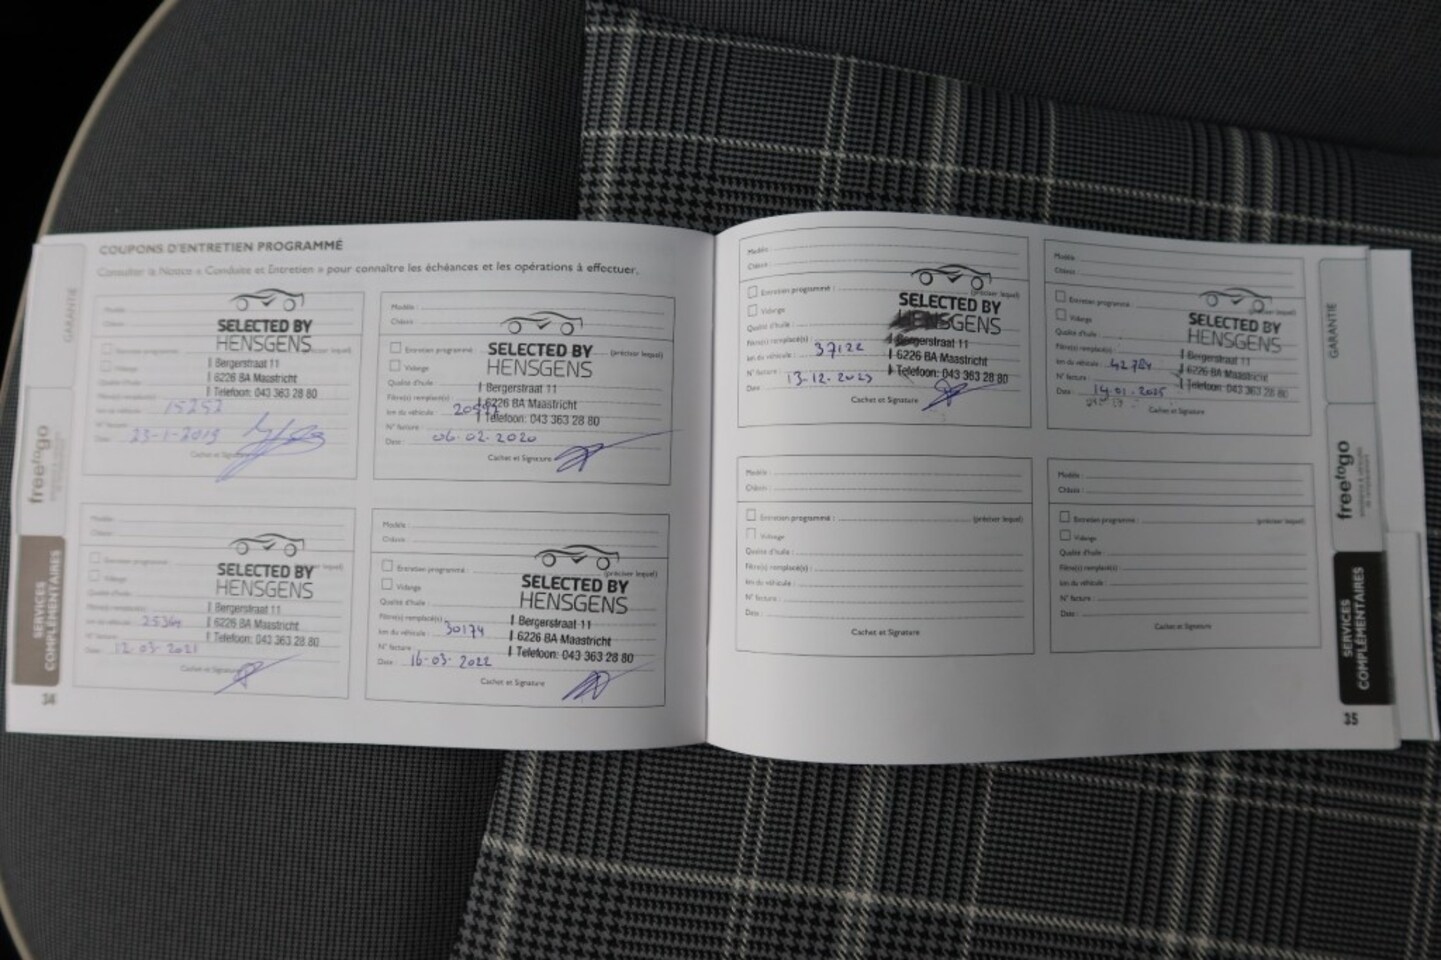 COUPONS D'ENTRETIEN PROGRAMMÉ
Consulter la Notice « Conduite et Entretien » pour connaître les échéances et les opérations à effectuer.
GARANTIE
freetogo
SERVICES
COMPLÉMENTAIRES
34
SELECTED BY
HENSGENS
Bergerstraat 11
6226 BA Maastricht
Telefoon: 043 363 28 80
15252
Date : 23-1-2019
Cachet et Signature
Modèle :
Châssis :
Entretien programmé : (préciser lequel)
Vidange
Qualité d'huile :
Filtre(s) remplacé(s) :
km du véhicule :
N° facture :
Date : 06-02-2020
SELECTED BY
HENSGENS
Bergerstraat 11
6226 BA Maastricht
Telefoon: 043 363 28 80
Cachet et Signature
Modèle :
Châssis :
Entretien programmé :
Vidange
Qualité d'huile :
km du véhicule : 25364
N° facture :
Date : 12-03-2021
SELECTED BY
HENSGENS
Bergerstraat 11
6226 BA Maastricht
Telefoon: 043 363 28 80
Cachet et Signature
Modèle :
Châssis :
Entretien programmé : (préciser lequel)
Vidange
Qualité d'huile :
Filtre(s) remplacé(s)
km du véhicule : 30174
N° facture :
Date : 16-03-2022
SELECTED BY
HENSGENS
Bergerstraat 11
6226 BA Maastricht
Telefoon: 043 363 28 80
Cachet et Signature
Modèle :
Châssis :
Entretien programmé : (préciser lequel)
Vidange
Qualité d'huile :
Filtre(s) remplacé(s)
km du véhicule : 37122
N° facture :
Date : 13-12-2023
SELECTED BY
HENSGENS
Bergerstraat 11
6226 BA Maastricht
Telefoon: 043 363 28 80
Cachet et Signature
Modèle :
Châssis :
Entretien programmé :
Vidange
Qualité d'huile :
Filtre(s) remplacé(s)
km du véhicule : 42784
N° facture :
Date : 14-01-2025
SELECTED BY
HENSGENS
Bergerstraat 11
6226 BA Maastricht
Telefoon: 043 363 28 80
Cachet et Signature
Modèle :
Châssis :
Entretien programmé : (préciser lequel)
Vidange
Qualité d'huile :
Filtre(s) remplacé(s) :
km du véhicule :
N° facture :
Date :
Cachet et Signature
Modèle :
Châssis :
Entretien programmé : (préciser lequel)
Vidange
Qualité d'huile :
Filtre(s) remplacé(s)
km du véhicule :
N° facture :
Date :
Cachet et Signature
GARANTIE
freetogo
SERVICES
COMPLÉMENTAIRES
35